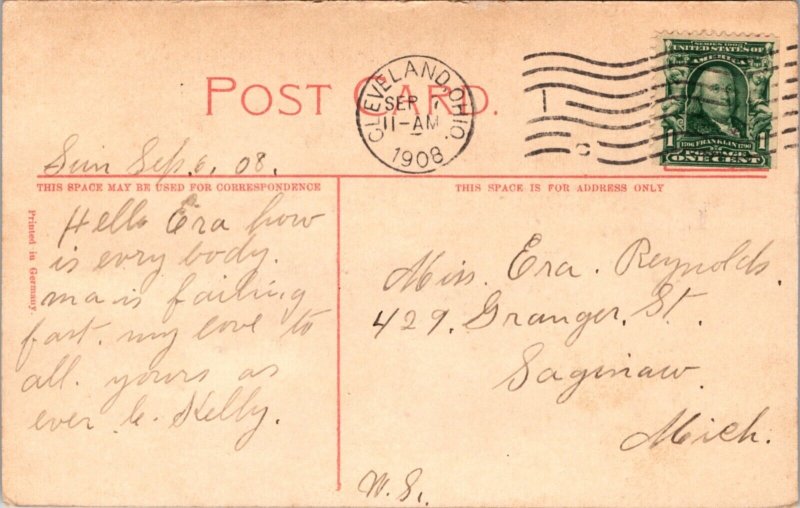 POST CARD.
CLEVELAND, OHIO.
SEP 7
11-AM
1908
SERIES 1902
UNITED STATES OF
AMERICA
1 1706 FRANKLIN 1790 1
POSTAGE
ONE CENT
Sun Sep. 6, 08.
THIS SPACE MAY BE USED FOR CORRESPONDENCE
THIS SPACE IS FOR ADDRESS ONLY
Printed in Germany.
Hello Era how
is evry body.
ma is failing
fast. my love to
all. yours as
ever C. Kelly.
Miss. Era. Reynolds.
429. Granger. St.
Saginaw.
Mich.
W. S.